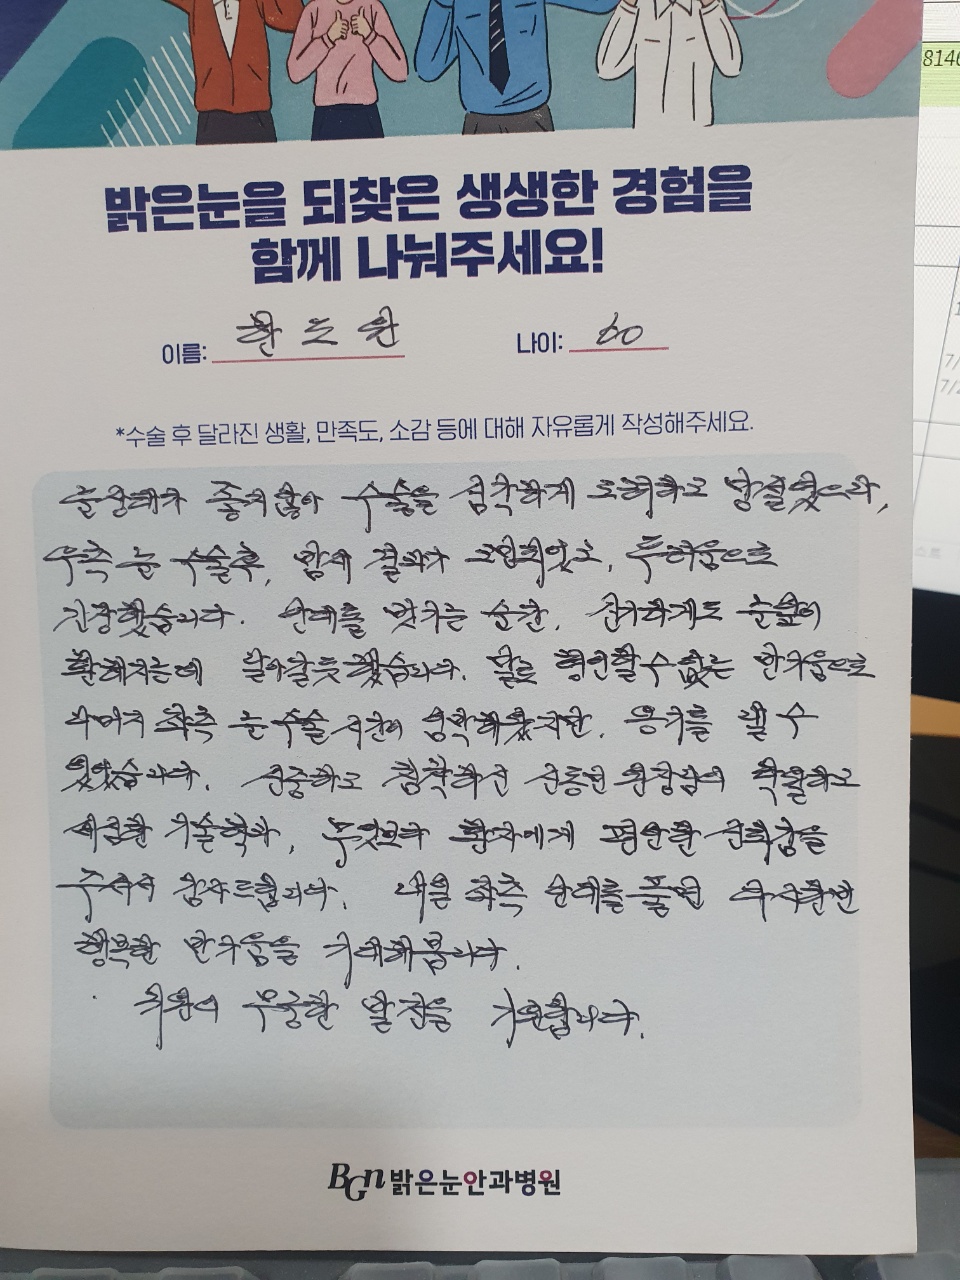 8146
밝은눈을 되찾은 생생한 경험을
함께 나눠주세요!
이름: 나이: 60
*수술 후 달라진 생활, 만족도, 소감 등에 대해 자유롭게 작성해주세요.
눈상태가 좋지않아 수술을 심각하게 고려하고 망설였으나,
우측 눈 수술후, 밤새 결과가 고민되었고, 두려움으로
긴장했습니다. 안대를 벗기는 순간, 신기하게도 눈앞이
환해지는데 날아갈듯 했습니다. 말로 형언할 수 없는 반가움으로
나머지 좌측 눈 수술 시간이 임박해왔지만, 용기를 낼 수
있었습니다. 신중하고 침착하신 원장님의 탁월하고
세심한 기술력과, 무엇보다 환자에게 평안한 신뢰감을
주셔서 감사드립니다. 내일 좌측 안대를 풀면 다시한번
행복한 반가움을 기대해봅니다.
귀원의 무궁한 발전을 기원합니다.
BGn 밝은눈안과병원